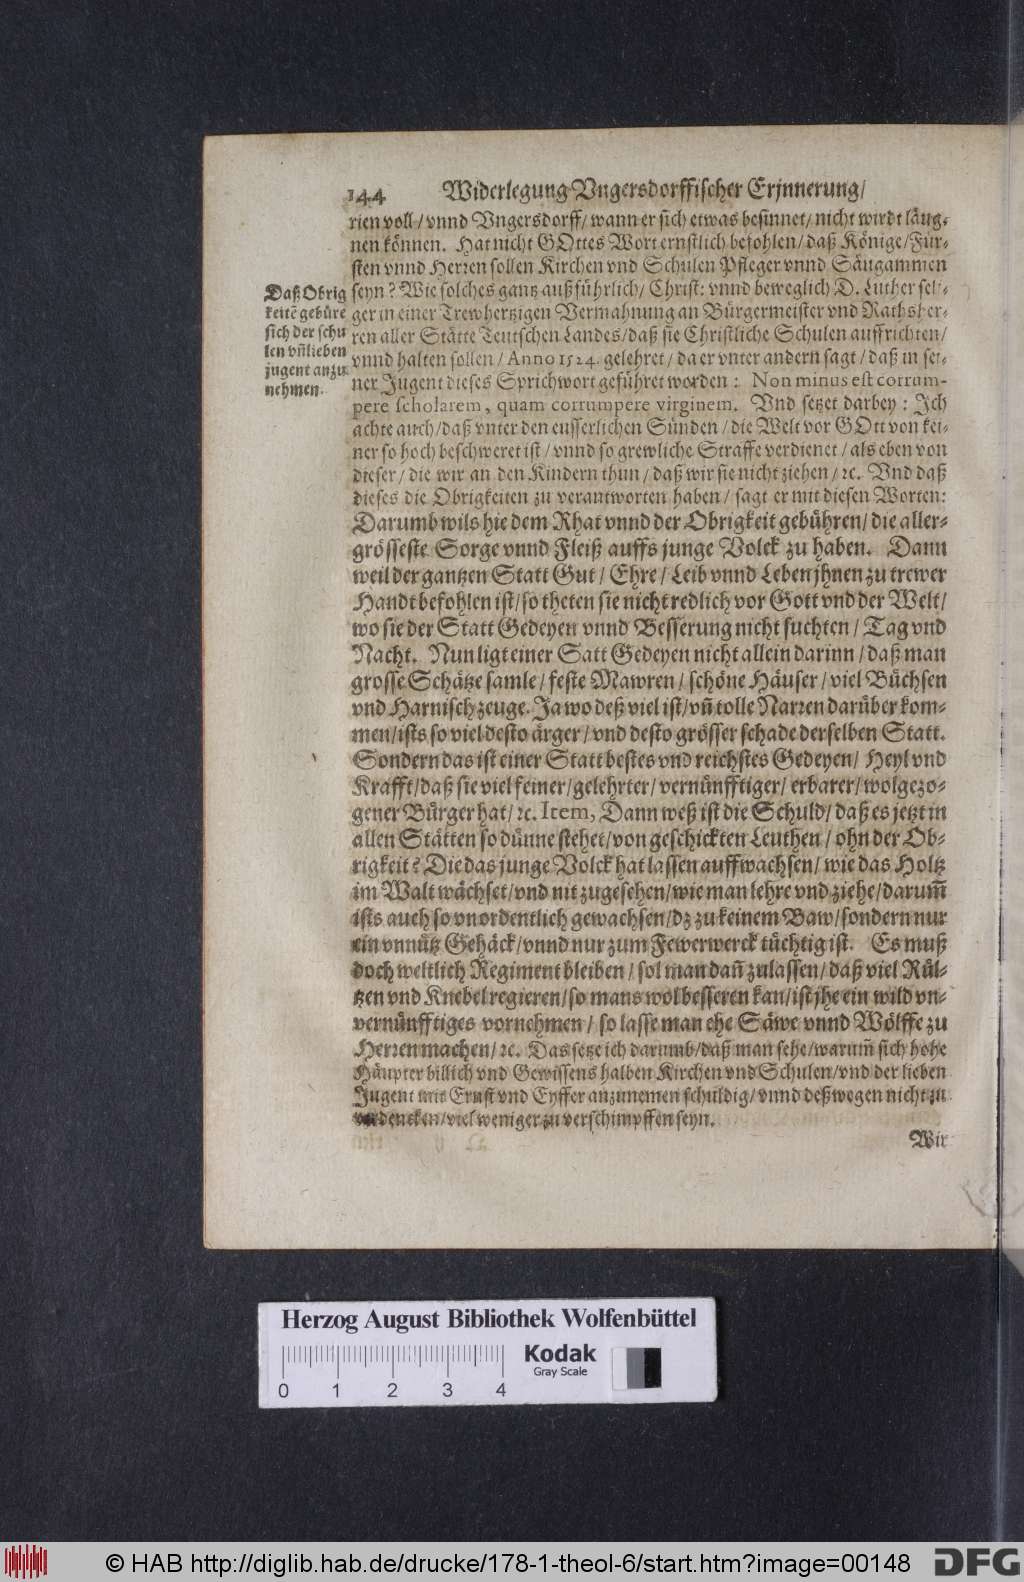 144 Widerlegung Vngersdorffischer Erjnnerung/
rien voll/ vnnd Vngersdorff/ wann er sich etwas besinnet/ nicht wirdt läug-
nen können. Hat nicht GOttes Wort ernstlich befohlen/ daß Könige/ Für-
sten vnnd Herren sollen Kirchen vnd Schulen Pfleger vnnd Säugammen
seyn? Wie solches gantz außführlich/ Christ: vnnd beweglich D. Luther seli-
ger in einer Trewhertzigen Vermahnung an Bürgermeister vnd Rathsher-
ren aller Stätte Teutschen Landes/ daß sie Christliche Schulen auffrichten/
vnnd halten sollen/ Anno 1524. gelehret/ da er vnter andern sagt/ daß in sei-
ner Jugent dieses Sprichwort geführet worden: Non minus est corrum-
pere scholarem, quam corrumpere virginem. Vnd setzet darbey: Ich
achte auch/ daß vnter den eusserlichen Sünden/ die Welt vor GOtt von kei-
ner so hoch beschweret ist/ vnnd so grewliche Straffe verdienet/ als eben von
dieser/ die wir an den Kindern thun/ daß wir sie nicht ziehen/ ꝛc. Vnd daß
dieses die Obrigkeiten zu verantworten haben/ sagt er mit diesen Worten:
Darumb wils hie dem Rhat vnnd der Obrigkeit gebühren/ die aller-
grösseste Sorge vnnd Fleiß auffs junge Volck zu haben. Dann
weil der gantzen Statt Gut/ Ehre/ Leib vnnd Leben jhnen zu trewer
Handt befohlen ist/ so theten sie nicht redlich vor Gott vnd der Welt/
wo sie der Statt Gedeyen vnnd Besserung nicht suchten/ Tag vnd
Nacht. Nun ligt einer Satt Gedeyen nicht allein darinn/ daß man
grosse Schätze samle/ feste Mawren/ schöne Häuser/ viel Büchsen
vnd Harnisch zeuge. Ja wo deß viel ist/ vñ tolle Narren darüber kom-
men/ ists so viel desto ärger/ vnd desto grösser schade derselben Statt.
Sondern das ist einer Statt bestes vnd reichstes Gedeyen/ Heyl vnd
Krafft/ daß sie viel feiner/ gelehrter/ vernünfftiger/ erbarer/ wolgezo-
gener Bürger hat/ ꝛc. Item, Dann weß ist die Schuld/ daß es jetzt in
allen Stätten so dünne stehet/ von geschickten Leuthen/ ohn der Ob-
rigkeit? Die das junge Volck hat lassen auffwachsen/ wie das Holtz
im Walt wächset/ vnd nit zugesehen/ wie man lehre vnd ziehe/ darum̃
ists auch so vnordentlich gewachsen/ dz zu keinem Baw/ sondern nur
ein vnnütz Gehäck/ vnnd nur zum Fewerwerck tüchtig ist. Es muß
doch weltlich Regiment bleiben/ sol man dañ zulassen/ daß viel Rül-
tzen vnd Knebel regieren/ so mans wol besseren kan/ ist jhe ein wild vn-
vernünfftiges vornehmen/ so lasse man ehe Säwe vnnd Wölffe zu
Herren machen/ ꝛc. Das setze ich darumb/ daß man sehe/ warum̃ sich hohe
Häupter billich vnd Gewissens halben Kirchen vnd Schulen/ vnd der lieben
Jugent mit Ernst vnd Eyffer anzunemen schuldig/ vnnd deßwegen nicht zu
verdencken/ viel weniger zu verschimpffen seyn.
Wir
Daß Obrig
keitẽ gebüre
sich der schu
len vñ lieben
jugent anzu
nehmen.
Herzog August Bibliothek Wolfenbüttel
Kodak
Gray Scale
0 1 2 3 4
© HAB http://diglib.hab.de/drucke/178-1-theol-6/start.htm?image=00148
DFG